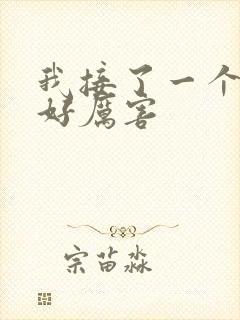 我接了一个
好厉害
宗苗淼